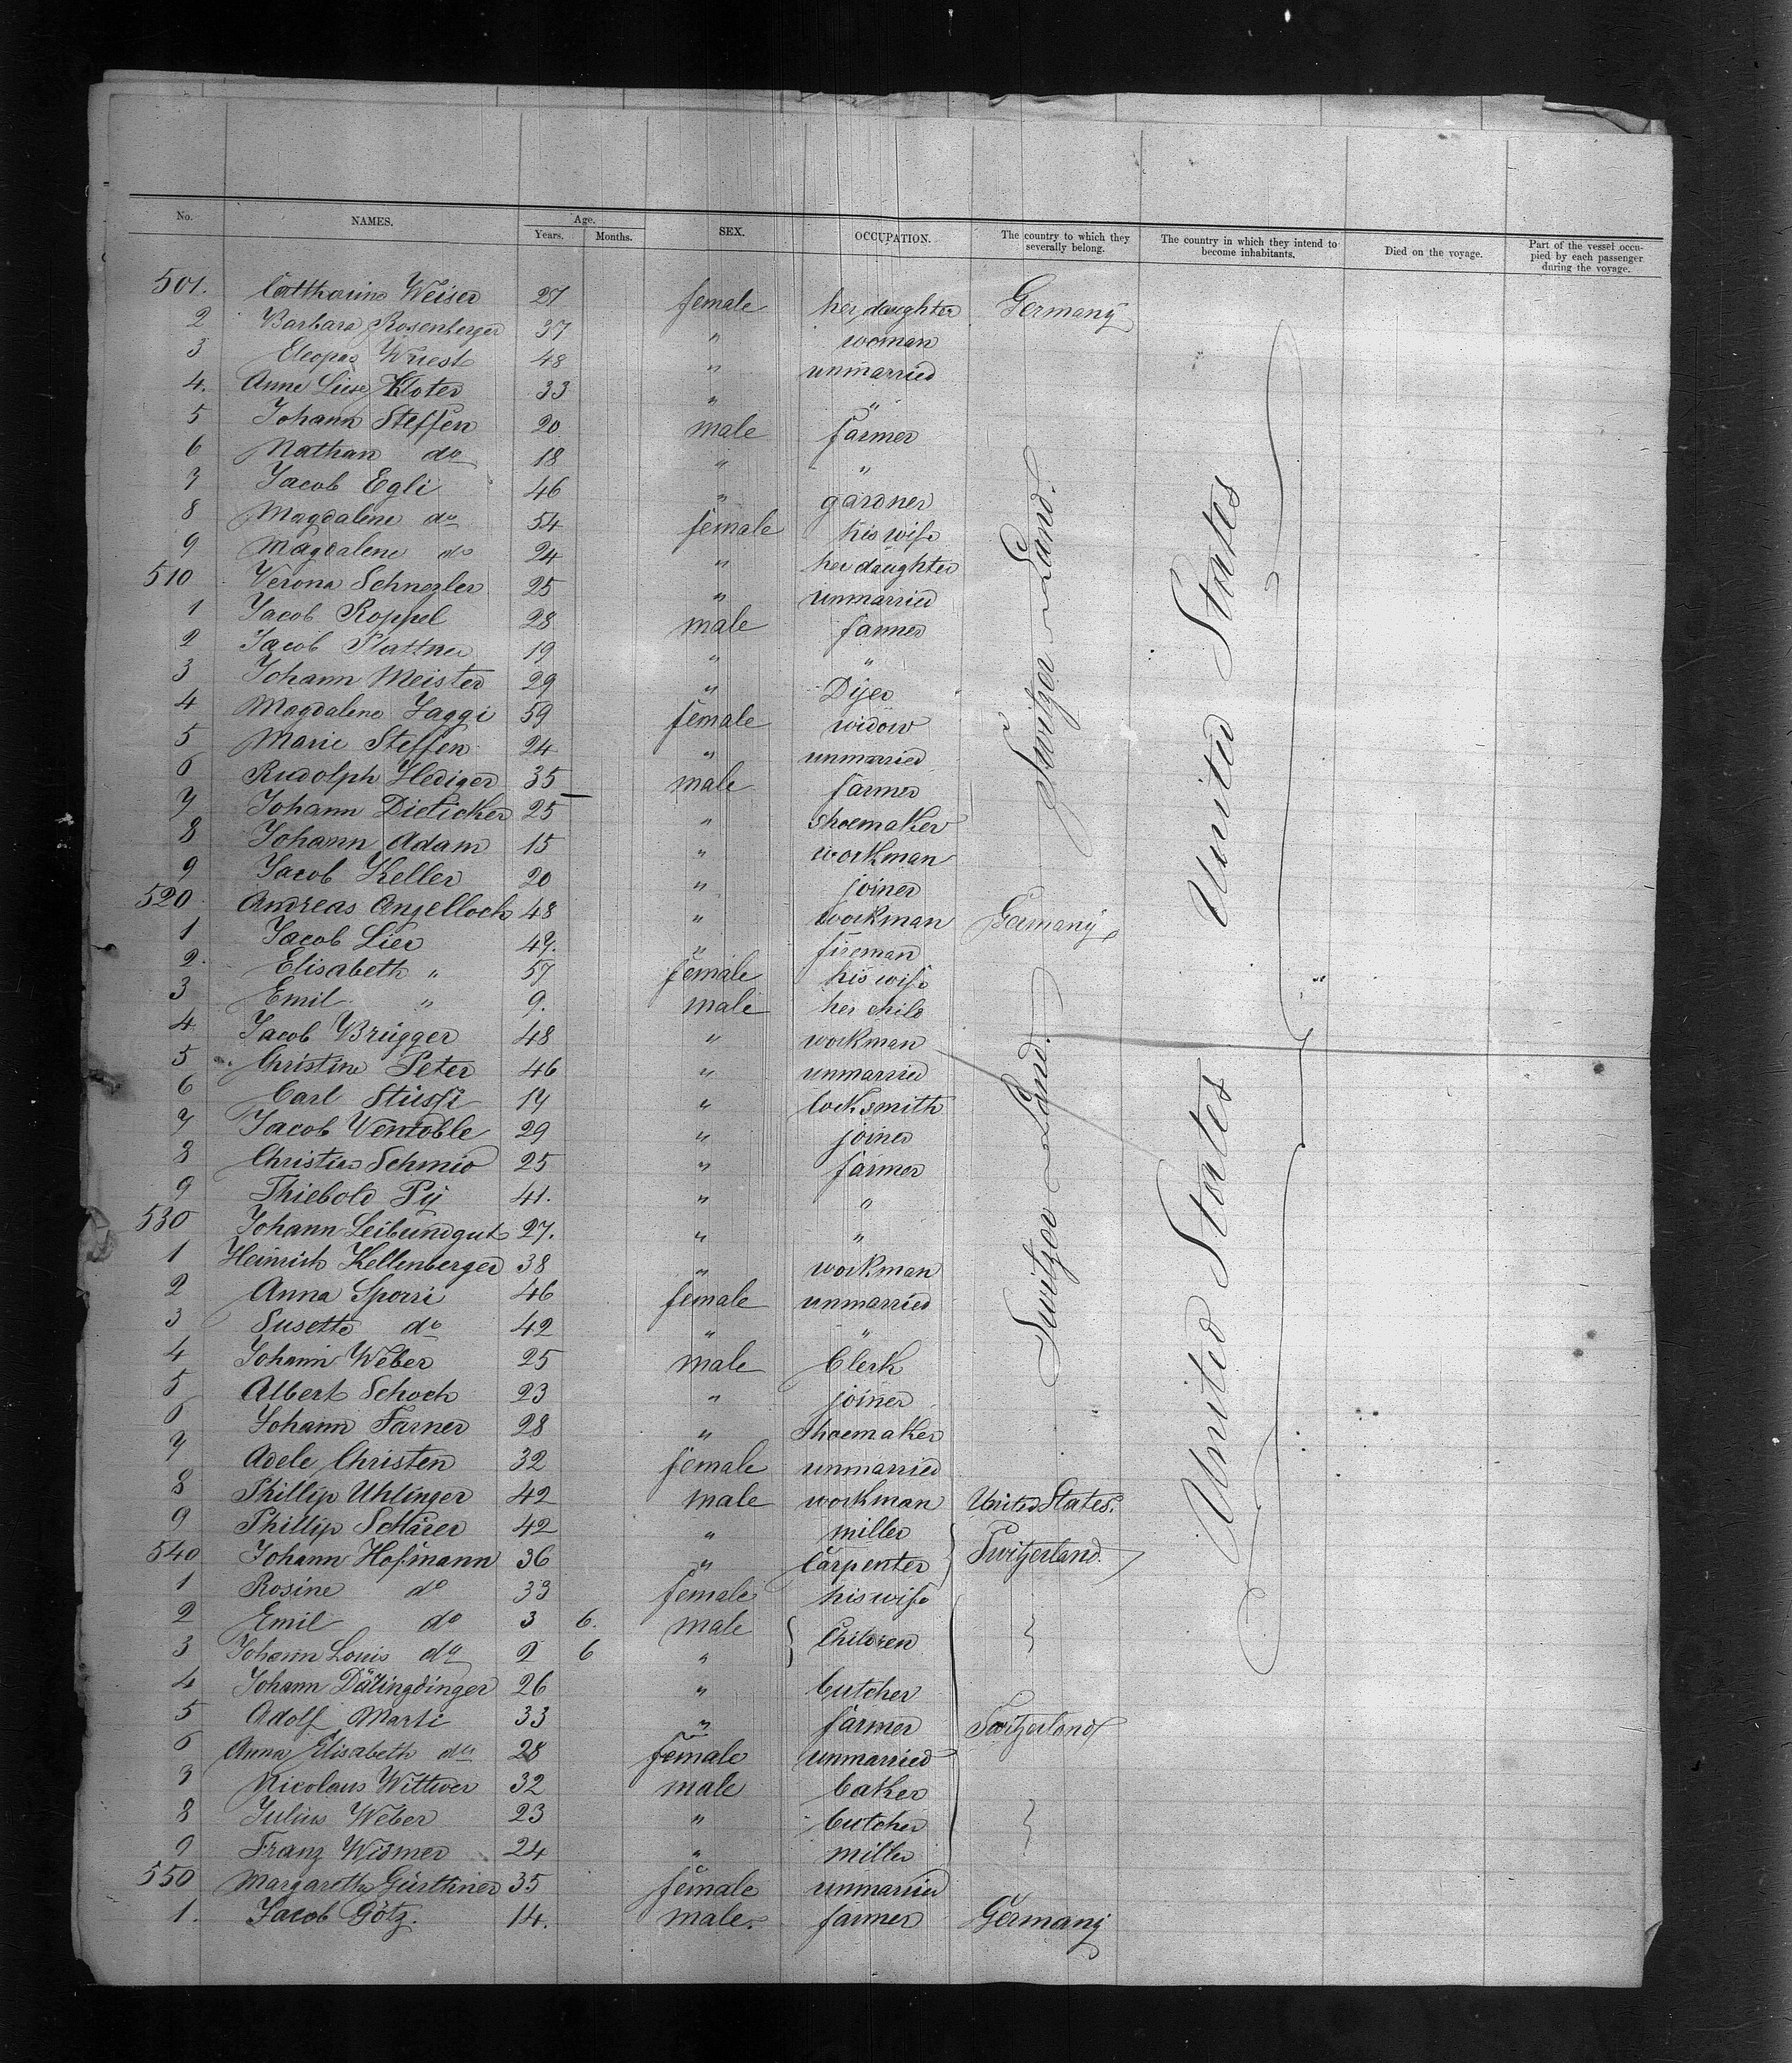 No. NAMES. Age. Years. Months. SEX. OCCUPATION. The country to which they severally belong. The country in which they intend to become inhabitants. Died on the voyage. Part of the vessel occupied by each passenger during the voyage.
501. Catharina Weiser 27 female her daughter Germany
2 Barbara Rosenberger 37 " woman
3 Cleopas Wuest 48 " unmarried
4. Anne Liese Kloter 33 " "
5 Johann Steffen 20 male farmer
6 Nathan do 18 " "
7 Jacob Egli 46 " gardner
8 Magdalene do 54 female his wife
9 Magdalene do 24 " her daughter
510 Verona Schnezler 25 " unmarried
1 Jacob Roppel 28 male farmer
2 Jacob Plattner 19 " "
3 Johann Meister 29 " Dyer
4 Magdalena Jaggi 59 female widow
5 Marie Steffen 24 " unmarried
6 Rudolph Hediger 35 male farmer
7 Johann Dieticker 25 " shoemaker
8 Johann Adam 15 " workman
9 Jacob Keller 20 " joiner
Switzer Land.
United States
520 Andreas Angelloch 48 " workman Germany
1 Jacob Lier 47. " fireman
2. Elisabeth " 57 female his wife
3 Emil " 9. male her child
4 Jacob Brügger 48 " workman
5 Christine Peter 46 " unmarried
6 Carl Stüssi 17 " locksmith
7 Jacob Wentoble 29 " joiner
8 Christian Schmid 25 " farmer
9 Thiebold Py 41. " "
530 Johann Leibundgut 27. " "
1 Heinrich Kellenberger 38 " workman
2 Anna Spörri 46 female unmarried
3 Susette do 42 " "
4 Johann Weber 25 male Clerk
5 Albert Schoch 23 " joiner
6 Johann Farner 28 " Shoemaker
7 Adele Christen 32 female unmarried
Switzer Land.
United States
8 Phillip Uhlinger 42 male workman United States.
9 Phillip Schärer 42 " miller
540 Johann Hofmann 36 " Carpenter Switzerland.
1 Rosine do 33 female his wife
2 Emil do 3 6. male Children
3 Johann Louis do 2 6 "
4 Johann 26 " butcher
5 Adolf Marti 33 " farmer Switzerland
6 Anna Elisabeth do 28 female unmarried
7 Nicolaus Wittwer 32 male baker
8 Julius Weber 23 " butcher
9 Franz Widmer 24 " miller
550 Margaretha Gürthner 35 female unmarried
1. Jacob Götz. 14. male. farmer Germany